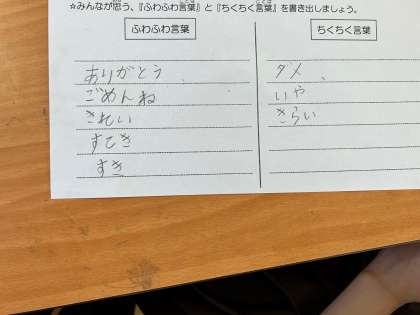 ☆みんなが思う、『ふわふわ言葉』と『ちくちく言葉』を書き出しましょう。
ふわふわ言葉
ありがとう
ごめんね
きれい
すてき
すき
ちくちく言葉
ダメ
いや
きらい